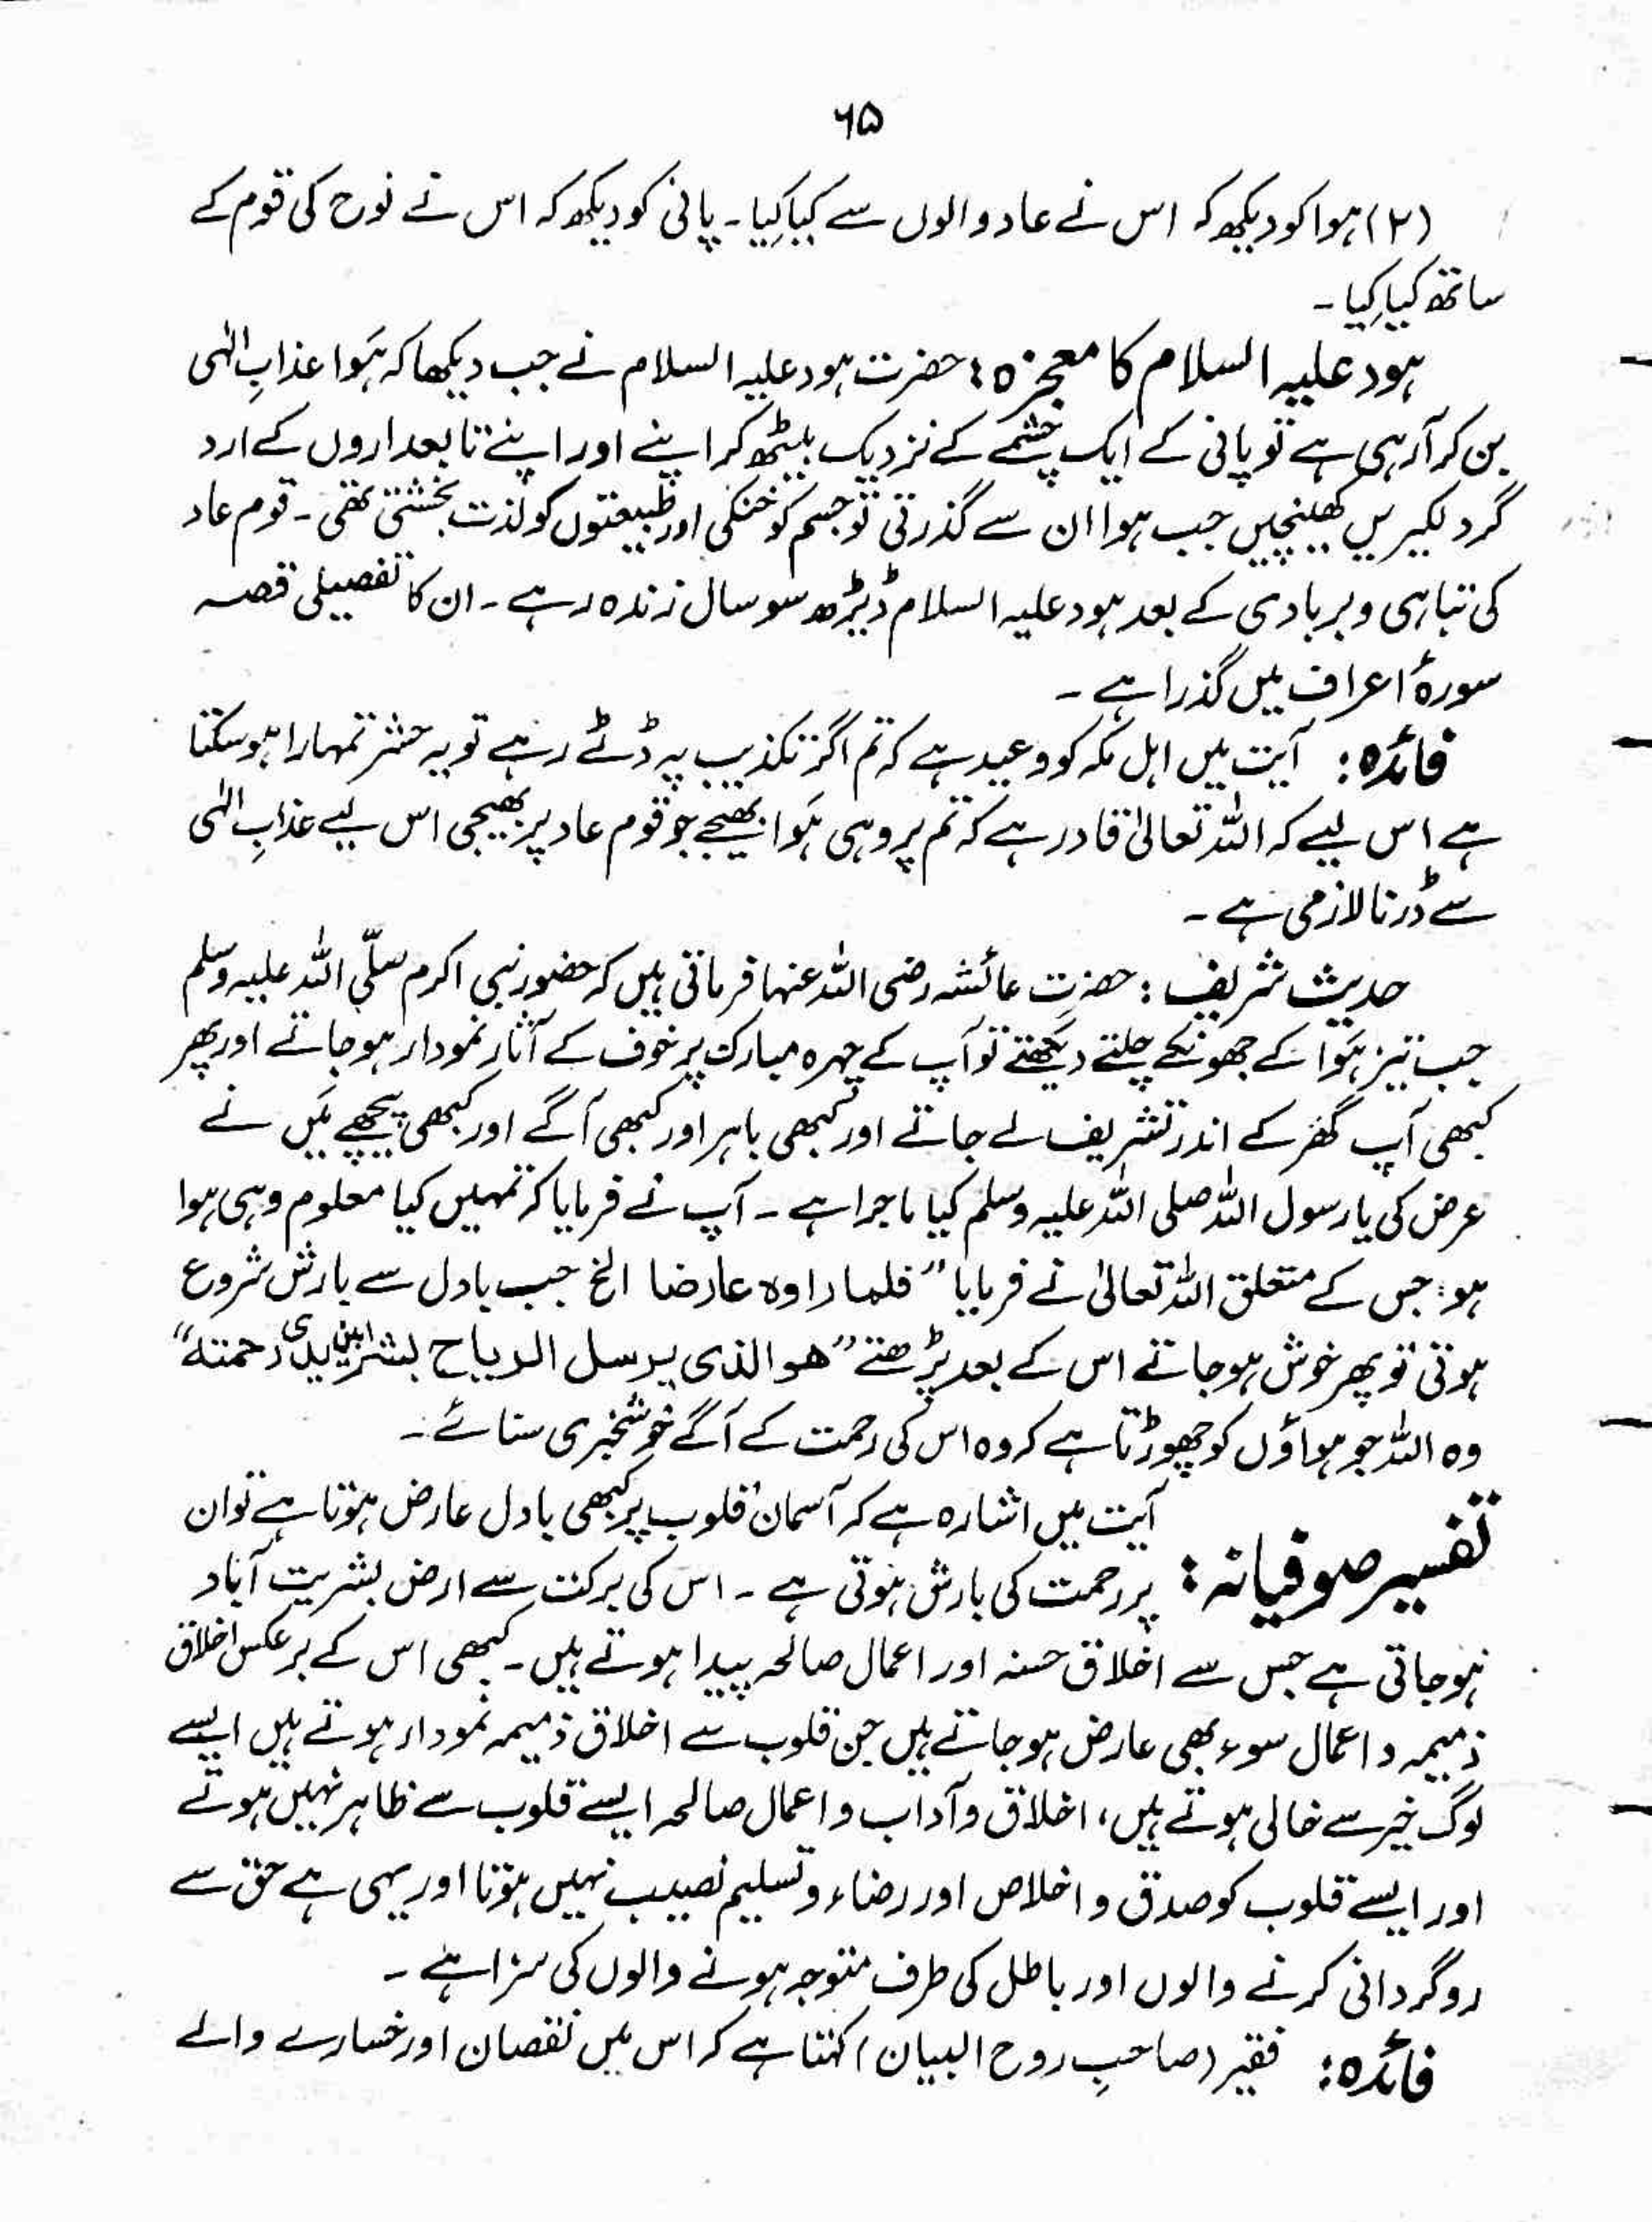 ۶۵
(۲) ہوا کو دیکھو کہ اس نے عاد والوں سے کیا کِیا۔ پانی کو دیکھو کہ اس نے نوح کی قوم کے
ساتھ کیا کِیا۔
ہود علیہ السلام کا معجزہ: حضرت ہود علیہ السلام نے جب دیکھا کہ ہَوا عذابِ الٰہی
بن کر آرہی ہے تو پانی کے ایک چشمے کے نزدیک بیٹھ کر اپنے اور اپنے تابعداروں کے ارد
گرد لکیریں کھینچیں جب ہوا ان سے گذرتی تو جسم کو خنکی اور طبیعتوں کو لذت بخشتی تھی۔ قوم عاد
کی تباہی و بربادی کے بعد ہود علیہ السلام ڈیڑھ سو سال زندہ رہے۔ ان کا تفصیلی قصہ
سورۂ اعراف میں گذرا ہے۔
فائدہ: آیت میں اہل مکہ کو وعید ہے کہ تم اگر تکذیب پہ ڈٹے رہے تو یہ حشر تمہارا ہوسکتا
ہے اس لیے کہ اللہ تعالیٰ قادر ہے کہ تم پر وہی ہَوا بھیجے جو قوم عاد پر بھیجی اس لیے عذابِ الٰہی
سے ڈرنا لازمی ہے۔
حدیث شریف: حضرت عائشہ رضی اللہ عنہا فرماتی ہیں کہ حضور نبی اکرم صلّی اللہ علیہ وسلم
جب تیز ہَوا کے جھونکے چلتے دیکھتے تو آپ کے چہرہ مبارک پر خوف کے آثار نمودار ہوجاتے اور پھر
کبھی آپ گھر کے اندر تشریف لے جاتے اور کبھی باہر اور کبھی آگے اور کبھی پیچھے مَیں نے
عرض کی یا رسول اللہ صلی اللہ علیہ وسلم کیا ماجرا ہے۔ آپ نے فرمایا کہ تمہیں کیا معلوم وہی ہوا
ہو جس کے متعلق اللہ تعالیٰ نے فرمایا ”فلما راوہ عارضا الخ جب بادل سے بارش شروع
ہوتی تو پھر خوش ہوجاتے اس کے بعد پڑھتے ”ھو الذی یرسل الریاح بشرا بین یدی رحمتہ“
وہ اللہ جو ہواؤں کو چھوڑتا ہے کہ وہ اس کی رحمت کے آگے خوشخبری سنائے۔
تفسیر صوفیانہ: آیت میں اشارہ ہے کہ آسمان قلوب پر کبھی بادل عارض ہوتا ہے تو ان
پر رحمت کی بارش ہوتی ہے۔ اس کی برکت سے ارض بشریت آباد
ہوجاتی ہے جس سے اخلاق حسنہ اور اعمال صالحہ پیدا ہوتے ہیں۔ کبھی اس کے برعکس اخلاق
ذمیمہ و اعمال سوء بھی عارض ہوجاتے ہیں جن قلوب سے اخلاق ذمیمہ نمودار ہوتے ہیں ایسے
لوگ خیر سے خالی ہوتے ہیں، اخلاق و آداب و اعمال صالحہ ایسے قلوب سے ظاہر نہیں ہوتے
اور ایسے قلوب کو صدق و اخلاص اور رضاء و تسلیم نصیب نہیں ہوتا اور یہی ہے حق سے
روگردانی کرنے والوں اور باطل کی طرف متوجہ ہونے والوں کی سزا ہے۔
فائدہ: فقیر (صاحبِ روح البیان) کہتا ہے کہ اس میں نقصان اور خسارے والے